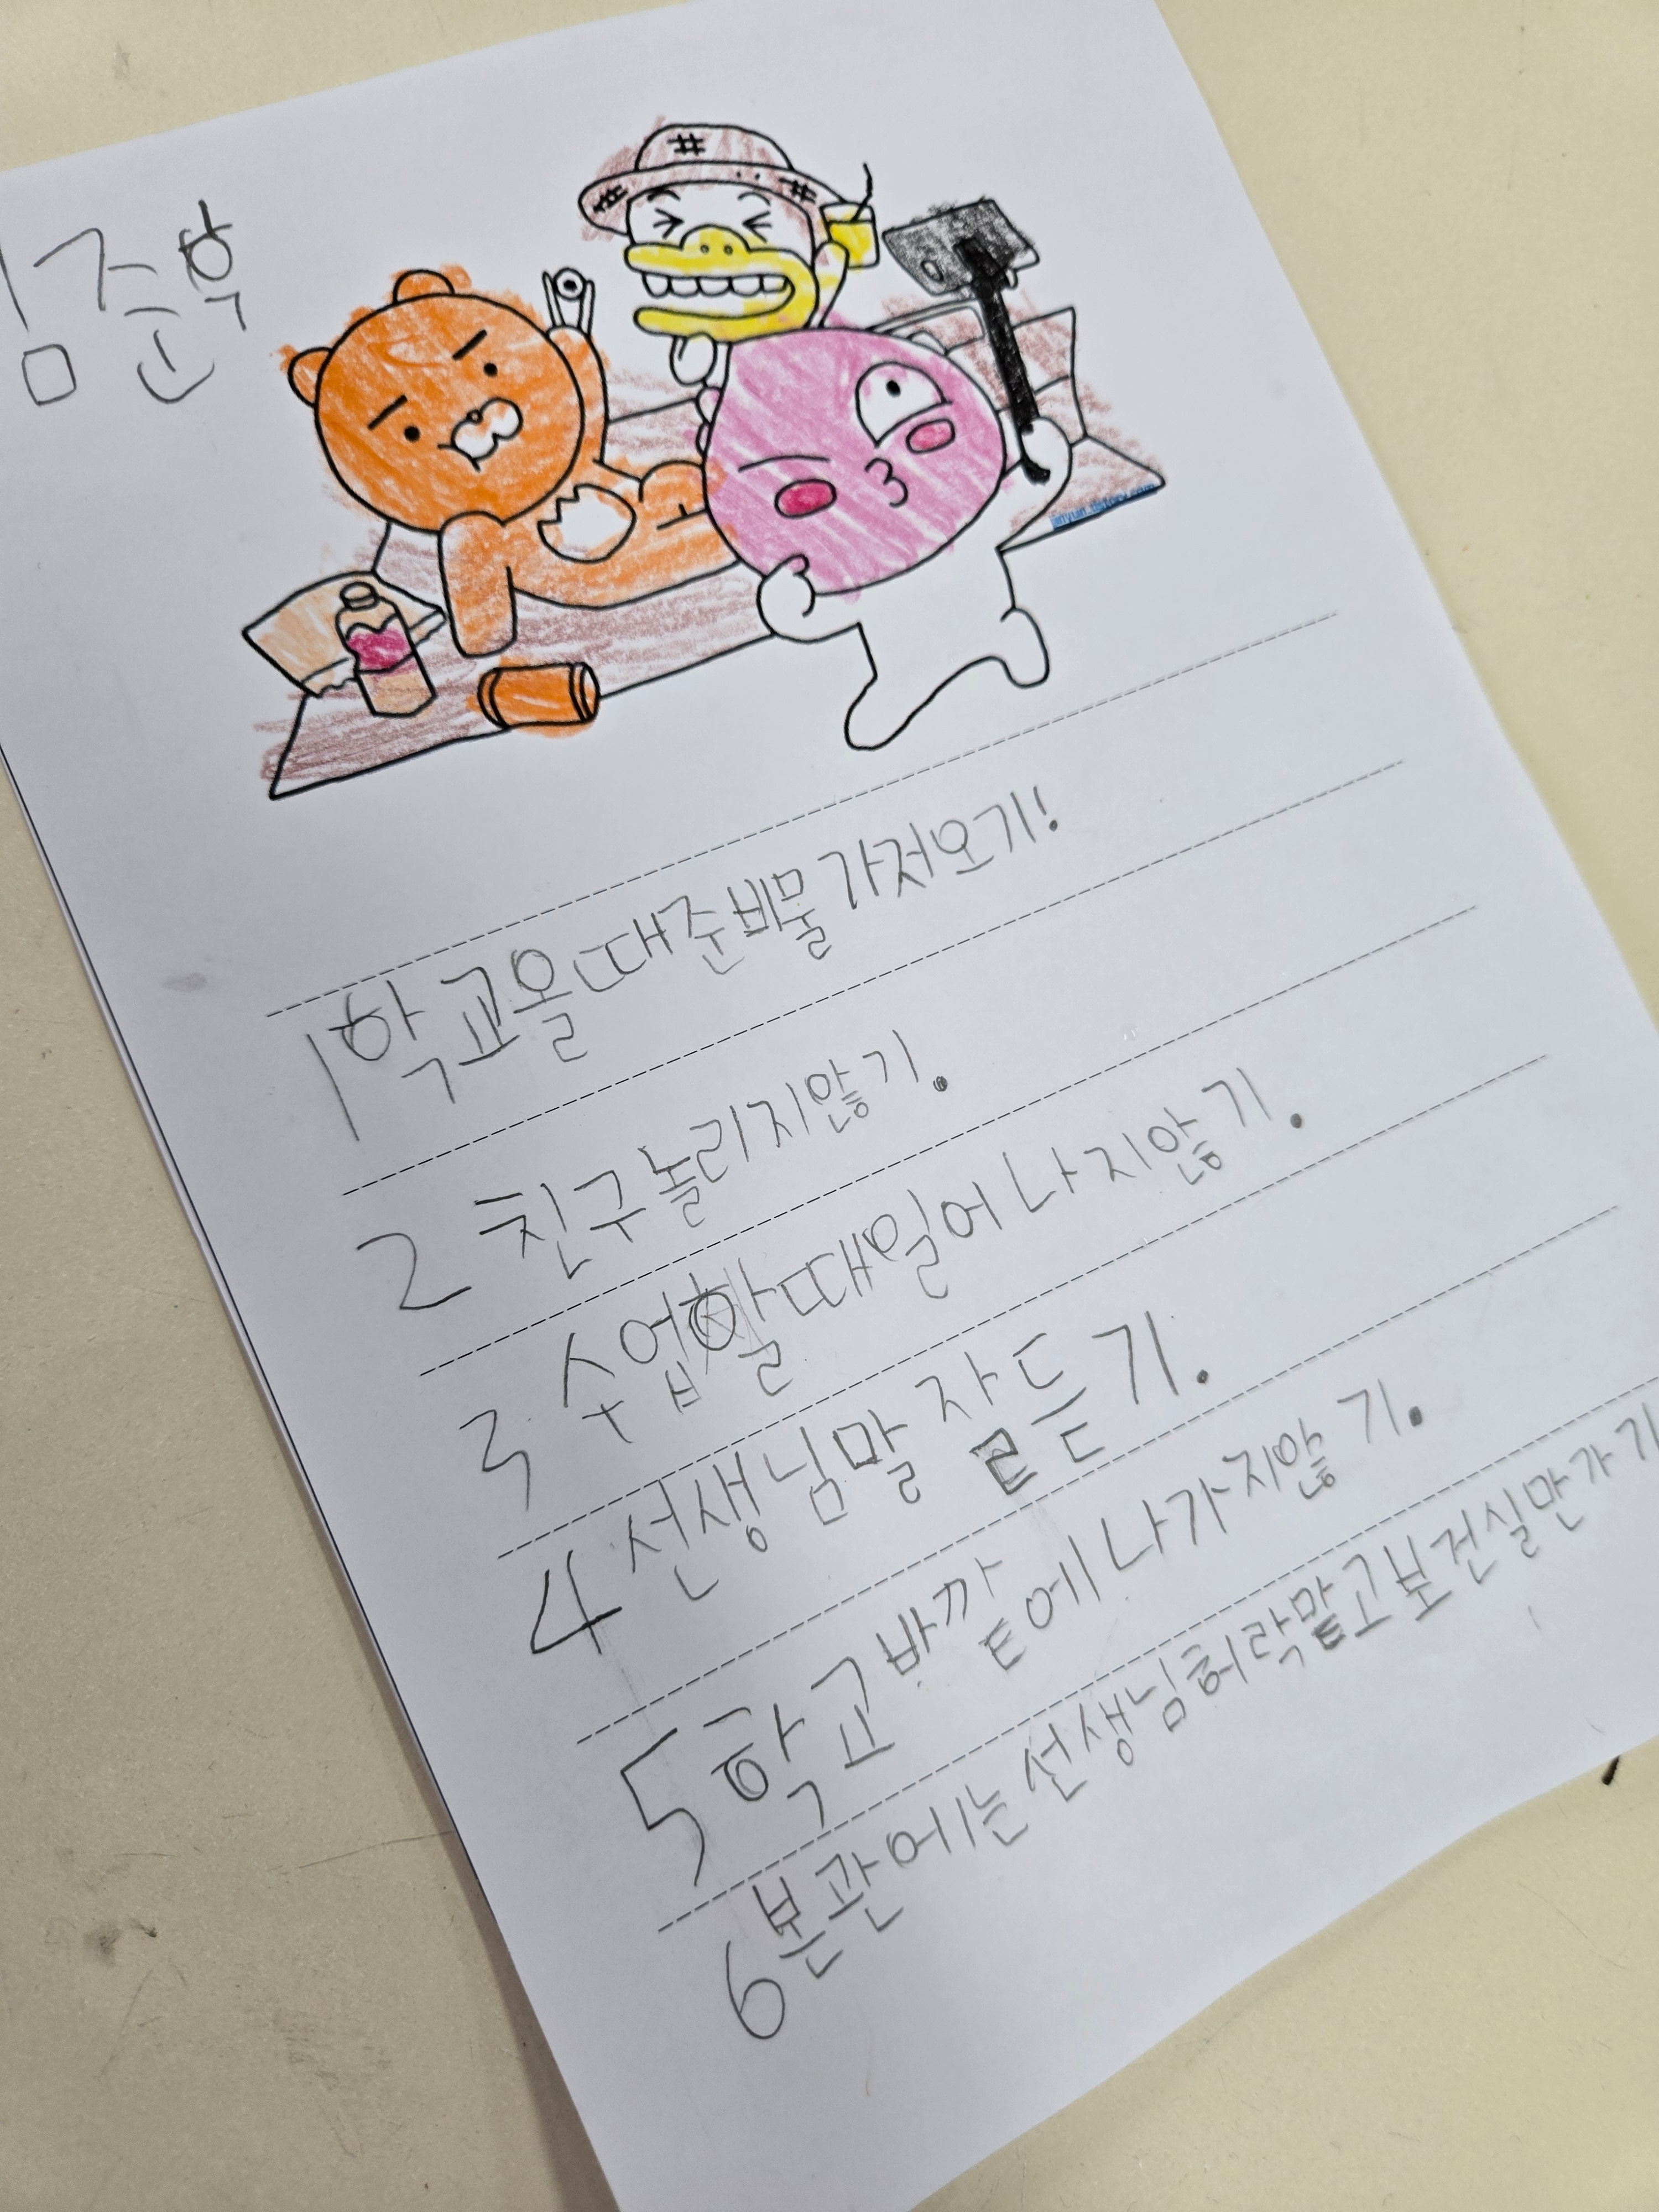 준학
jinyuin.tistory.com
1 학교올때준비물가저오기!
2 친구놀리지않기.
3 수업할때일어나지않기.
4 선생님말잘듣기.
5 학교바깥에나가지않기.
6 본관에는선생님허락맡고보건실만가기